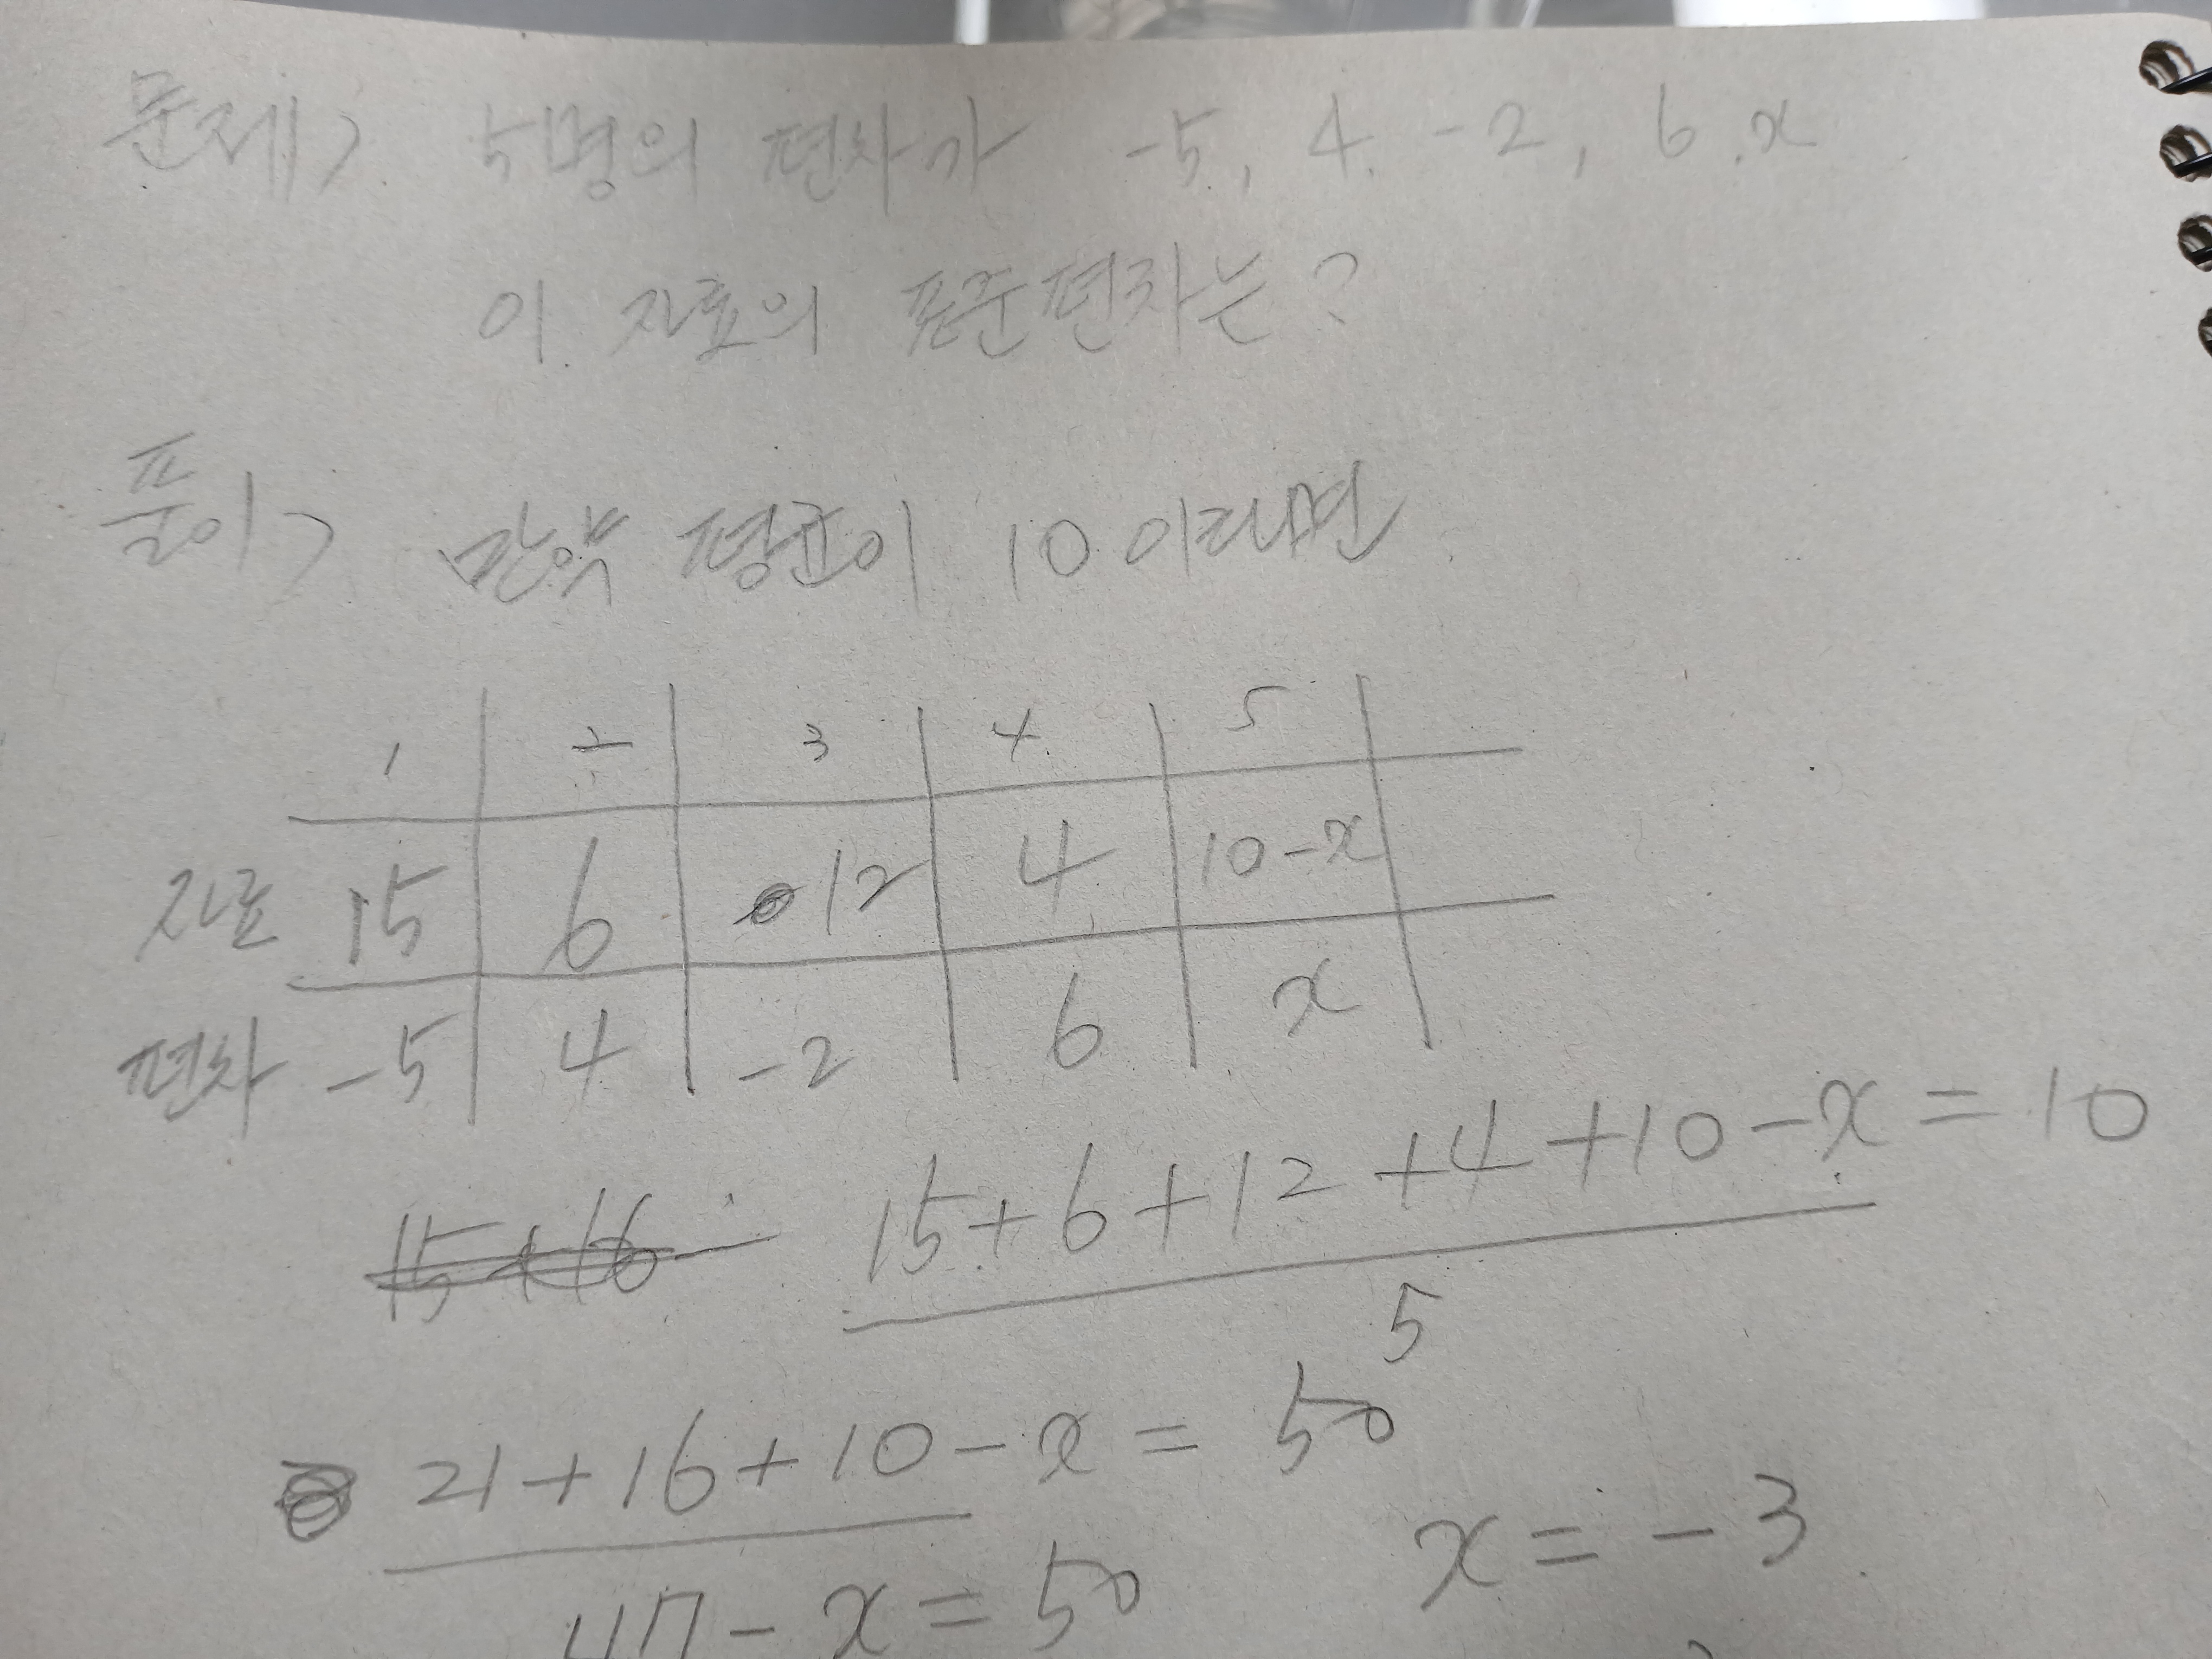 문제> 5명의 편차가 -5, 4. -2, 6.x
이 자료의 표준편차는?
풀이> 만약 평균이 10이라면
1 2 3 4 5
자료 15 6 12 4 10-x
편차 -5 4 -2 6 x
15+16
15+6+12+4+10-x = 10
5
21+16+10-x = 50
x = -3
47-x = 50